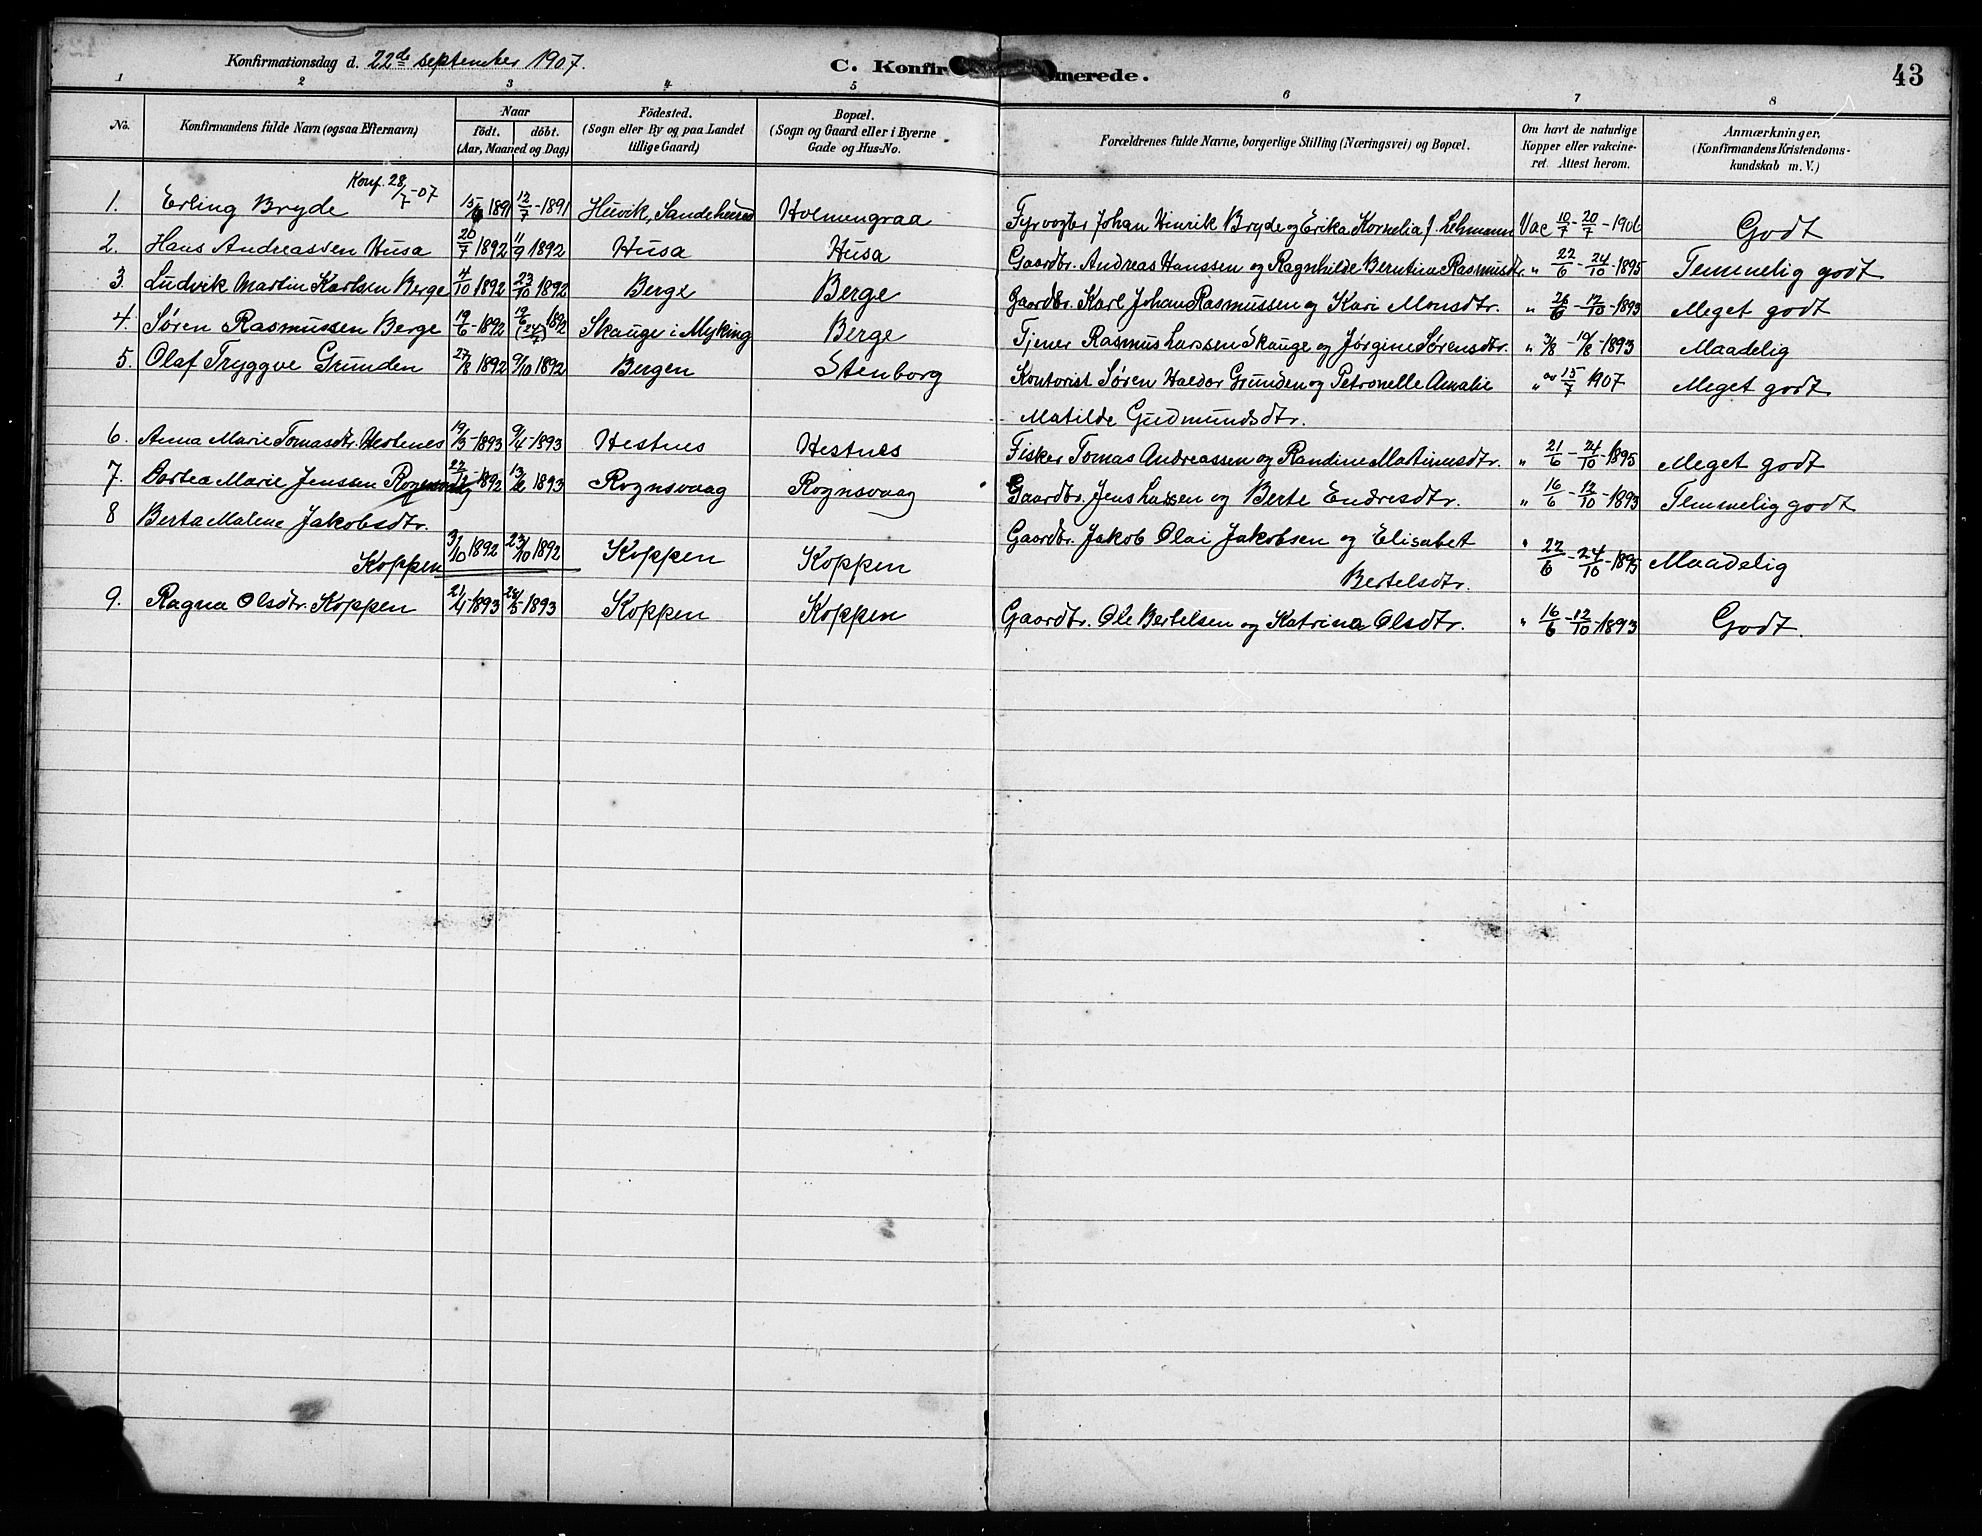 Konfirmationsdag d. 22de september 1907.
C. Konfir merede.
43
1 2 3 4 5 6 7 8
No. Konfirmandens fulde Navn (ogsaa Efternavn) Naar födt. döbt. (Aar, Maaned og Dag) Födested. (Sogn eller By og paa Landet tillige Gaard) Bopæl. (Sogn og Gaard eller i Byerne Gade og Hus-No. Forældrenes fulde Navne, borgerlige Stilling (Næringsvei) og Bopæl. Om havt de naturlige Kopper eller vakcineret. Attest herom. Anmærkninger. (Konfirmandens Kristendomskundskab m. V.)
Konf. 28/7-07
1. Erling Bryde 1891 12/7-1891 Huvik, Sandeherred Holmengraa Fyrvogter Johan Hinrik Bryde og Erika Kornelia f. Lehmann Vac 10/7-20/7-1906 Godt
2. Hans Andreassen Husa 20/7 1892 11/9 1892 Husa Husa Gaardbr. Andreas Hanssen og Ragnhilde Berntina Rasmusdtr. " 22/6-24/10-1895 Temmelig godt
3. Ludvik Martin Karlsen Berge 4/10 1892 23/10 1892 Berge Berge Gaardbr. Karl Johan Rasmussen og Kari Monsdtr. " 26/6-12/10-1893 Meget godt
4. Søren Rasmussen Berge 19/6-1892 19/6 1892 Skauge i Myking Berge Tjener Rasmus Larssen Skauge og Jørgine Sørensdtr. " 3/8-10/8-1893 Maadelig
5. Olaf Tryggve Grunden 27/8 1892 9/10 1892 Bergen Stenborg Kontorist Søren Haldor Grunden og Petronelle Amalie " 15/7 1907 Meget godt
Matilde Gudmundsdtr.
6. Anna Marie Tomasdtr. Hestenes 19/3-1893 9/4-1893 Hestnes Hestnes Fisker Tomas Andreassen og Randine Martinusdtr. " 21/6-24/10-1895 Meget godt
7. Dortea Marie Jenssen Rognsvaag 22/12-1892 1893 Rognsvaag Rognsvaag Gaardbr. Jens Lassen og Berte Endresdtr. " 16/6-12/10-1893 Temmelig godt
8 Berta Malene Jakobsdtr. Gaardbr. Jakob Olai Jakobsen og Elisabet "
Koppen 3/10 1892 23/10 1892 Koppen Koppen Bertelsdtr. 22/6-24/10-1895 Maadelig
9. Ragna Olsdtr. Koppen 21/4-1893 28/5-1893 Koppen Koppen Gaardbr. Ole Bertelsen og Katrina Olsdtr. " 16/6-12/10-1893 Godt.